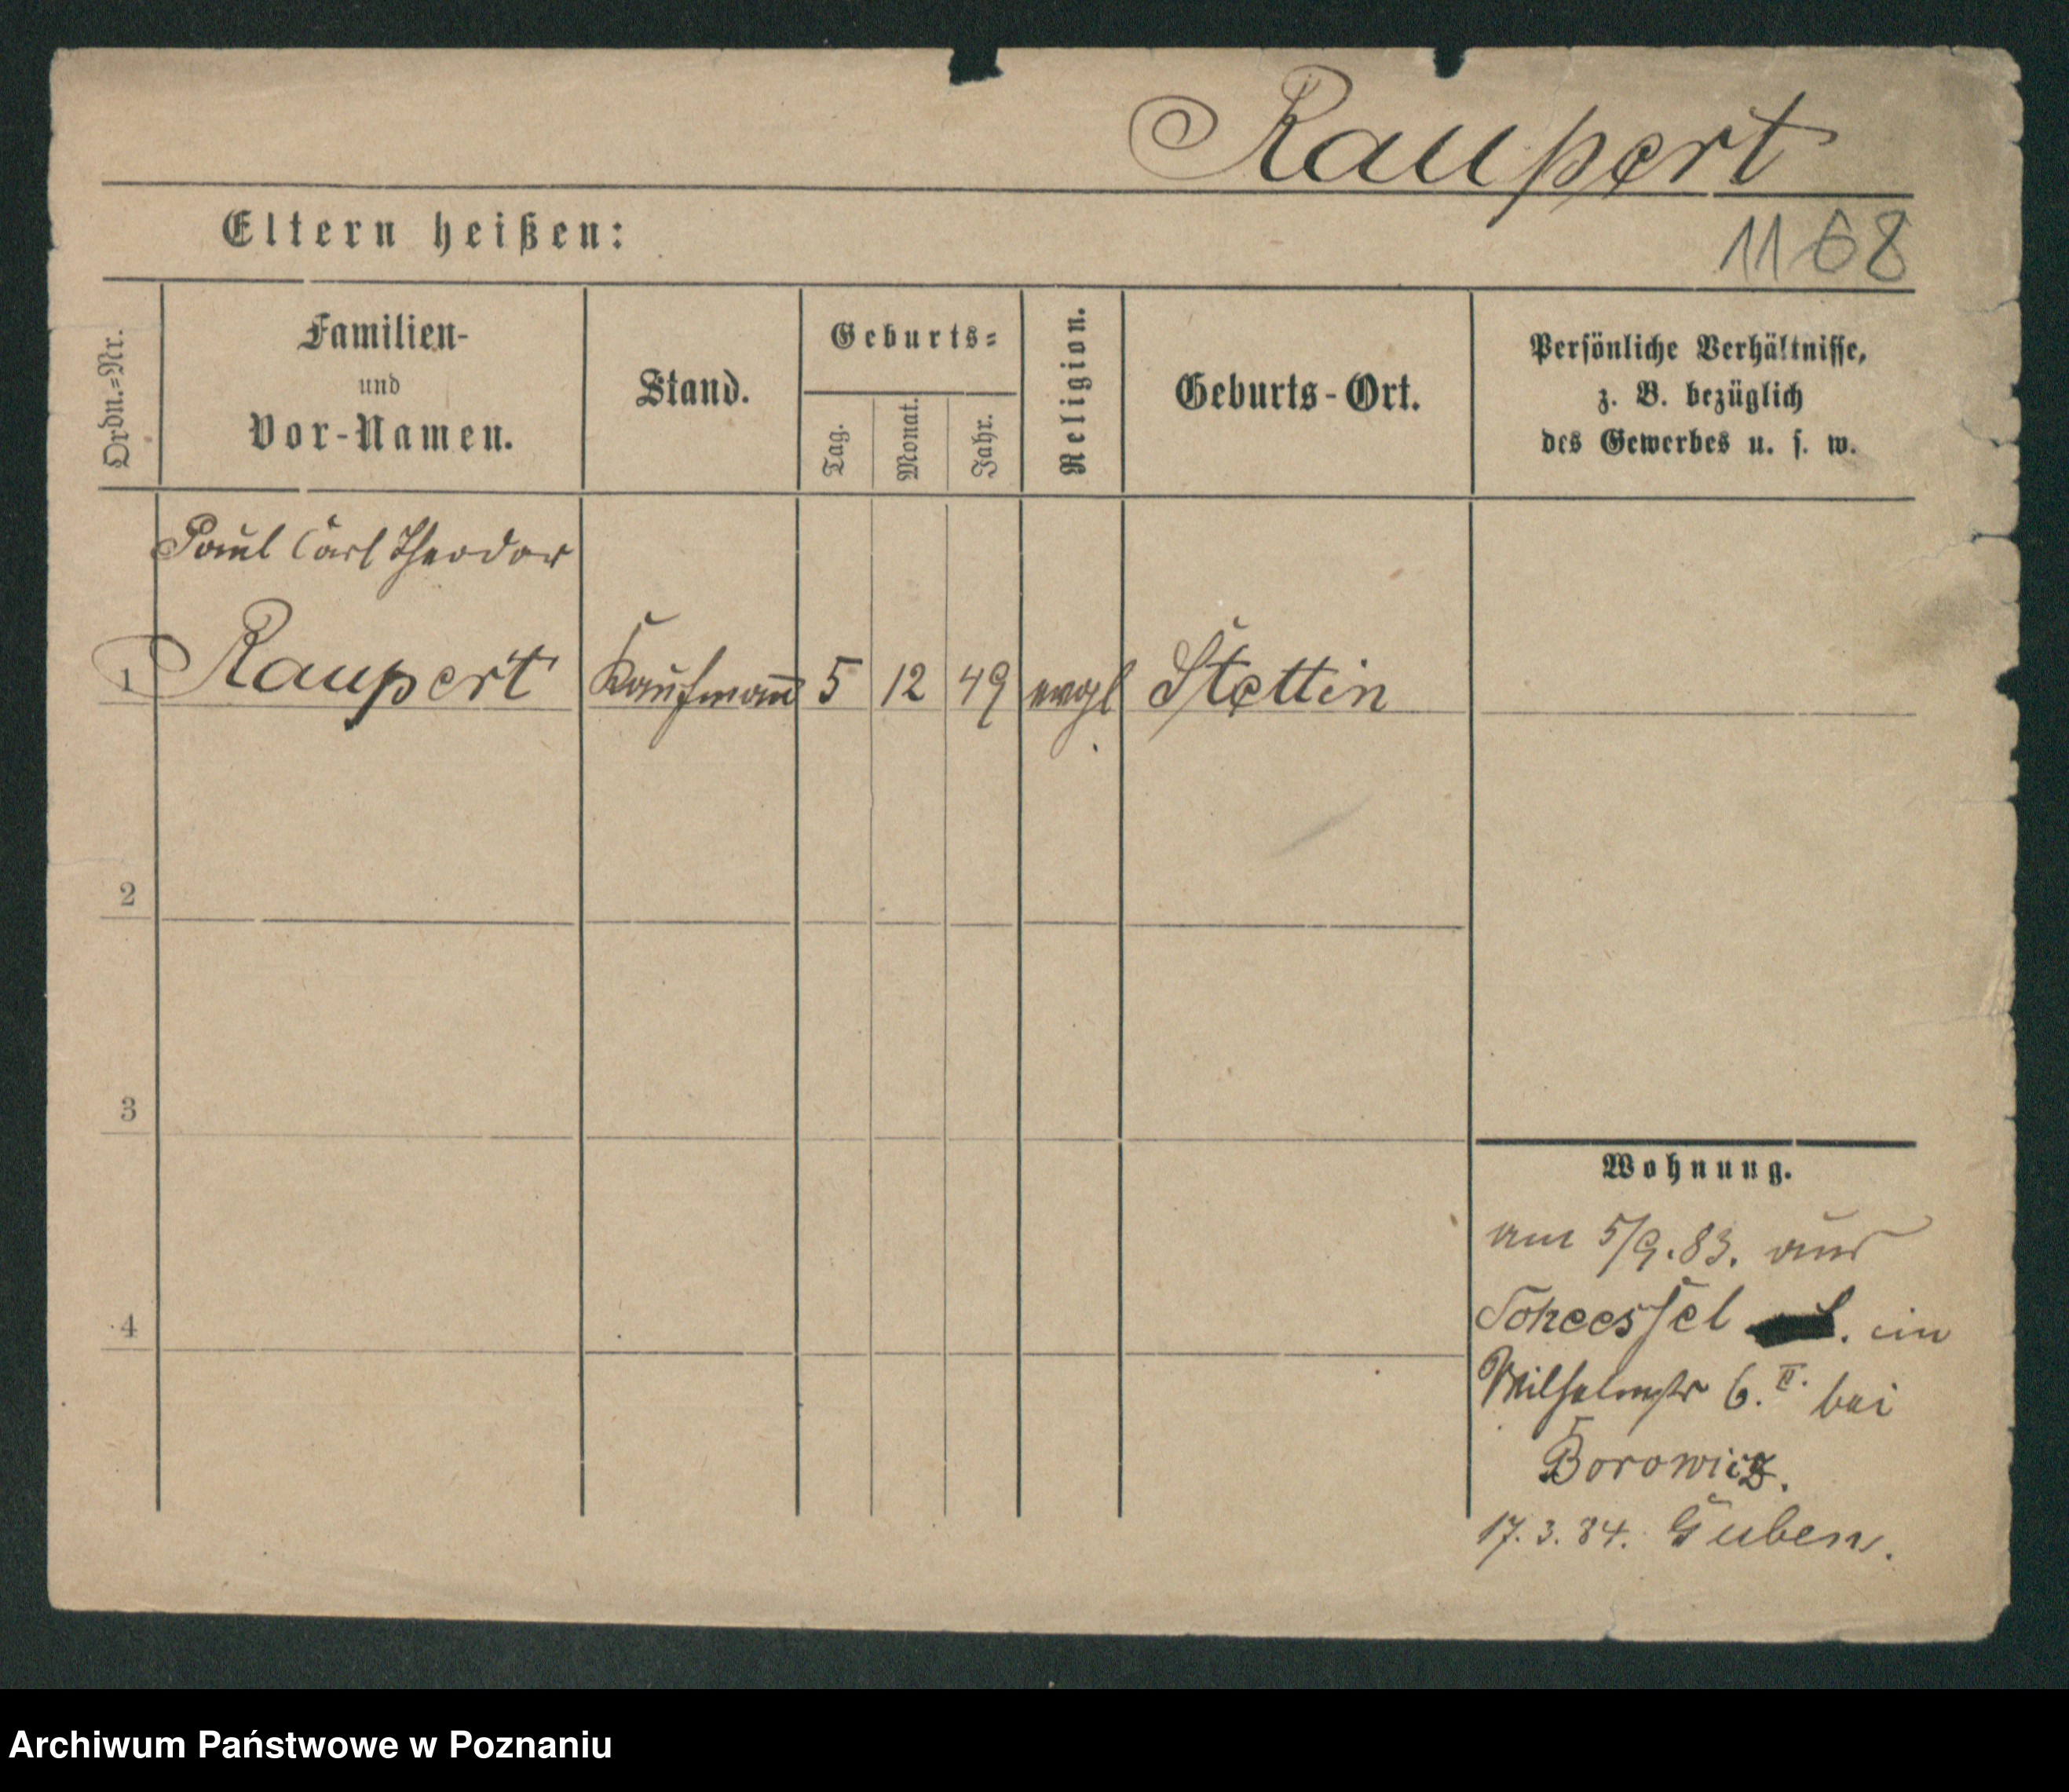 Raupert
Eltern heißen:
1168
Ordn.=Nr.
Familien-
und
Vor-Namen.
Stand.
Geburts=
Tag.
Monat.
Jahr.
Religion.
Geburts-Ort.
Persönliche Verhältnisse,
z. B. bezüglich
des Gewerbes u. s. w.
Paul Carl Theodor
1 Raupert Kaufmann 5 12 49 evgl Stettin
2
3
4
Wohnung.
am 5/9.83. aus
Scheessel in
Wilhelmstr 6.II. bei
Borowicz.
17.3.84. Guben.
Archiwum Państwowe w Poznaniu